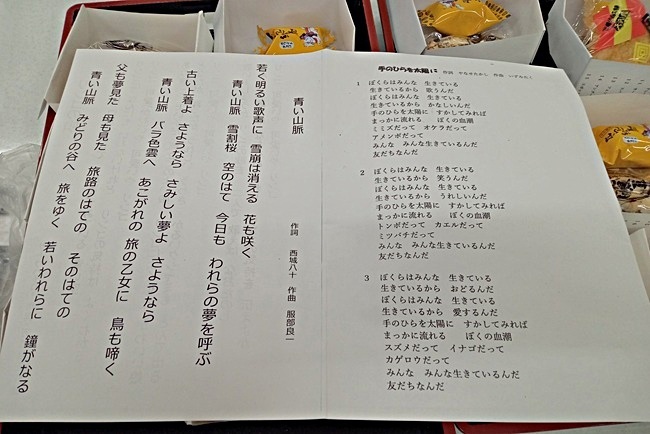 青い山脈
作詞 西城八十 作曲 服部良一
若く明るい歌声に 雪崩は消える 花も咲く
青い山脈 雪割桜 空のはて 今日も われらの夢を呼ぶ
古い上着よ さようなら さみしい夢よ さようなら
青い山脈 バラ色雲へ あこがれの 旅の乙女に 鳥も啼く
父も夢見た 母も見た 旅路のはての そのはての
青い山脈 みどりの谷へ 旅をゆく 若いわれらに 鐘がなる
手のひらを太陽に 作詞 やなせたかし 作曲 いずみたく
1 ぼくらはみんな 生きている
生きているから 歌うんだ
ぼくらはみんな 生きている
生きているから かなしいんだ
手のひらを太陽に すかしてみれば
まっかに流れる ぼくの血潮
ミミズだって オケラだって
アメンボだって
みんな みんな生きているんだ
友だちなんだ
2 ぼくらはみんな 生きている
生きているから 笑うんだ
ぼくらはみんな 生きている
生きているから うれしいんだ
手のひらを太陽に すかしてみれば
まっかに流れる ぼくの血潮
トンボだって カエルだって
ミツバチだって
みんな みんな生きているんだ
友だちなんだ
3 ぼくらはみんな 生きている
生きているから おどるんだ
ぼくらはみんな 生きている
生きているから 愛するんだ
手のひらを太陽に すかしてみれば
まっかに流れる ぼくの血潮
スズメだって イナゴだって
カゲロウだって
みんな みんな生きているんだ
友だちなんだ